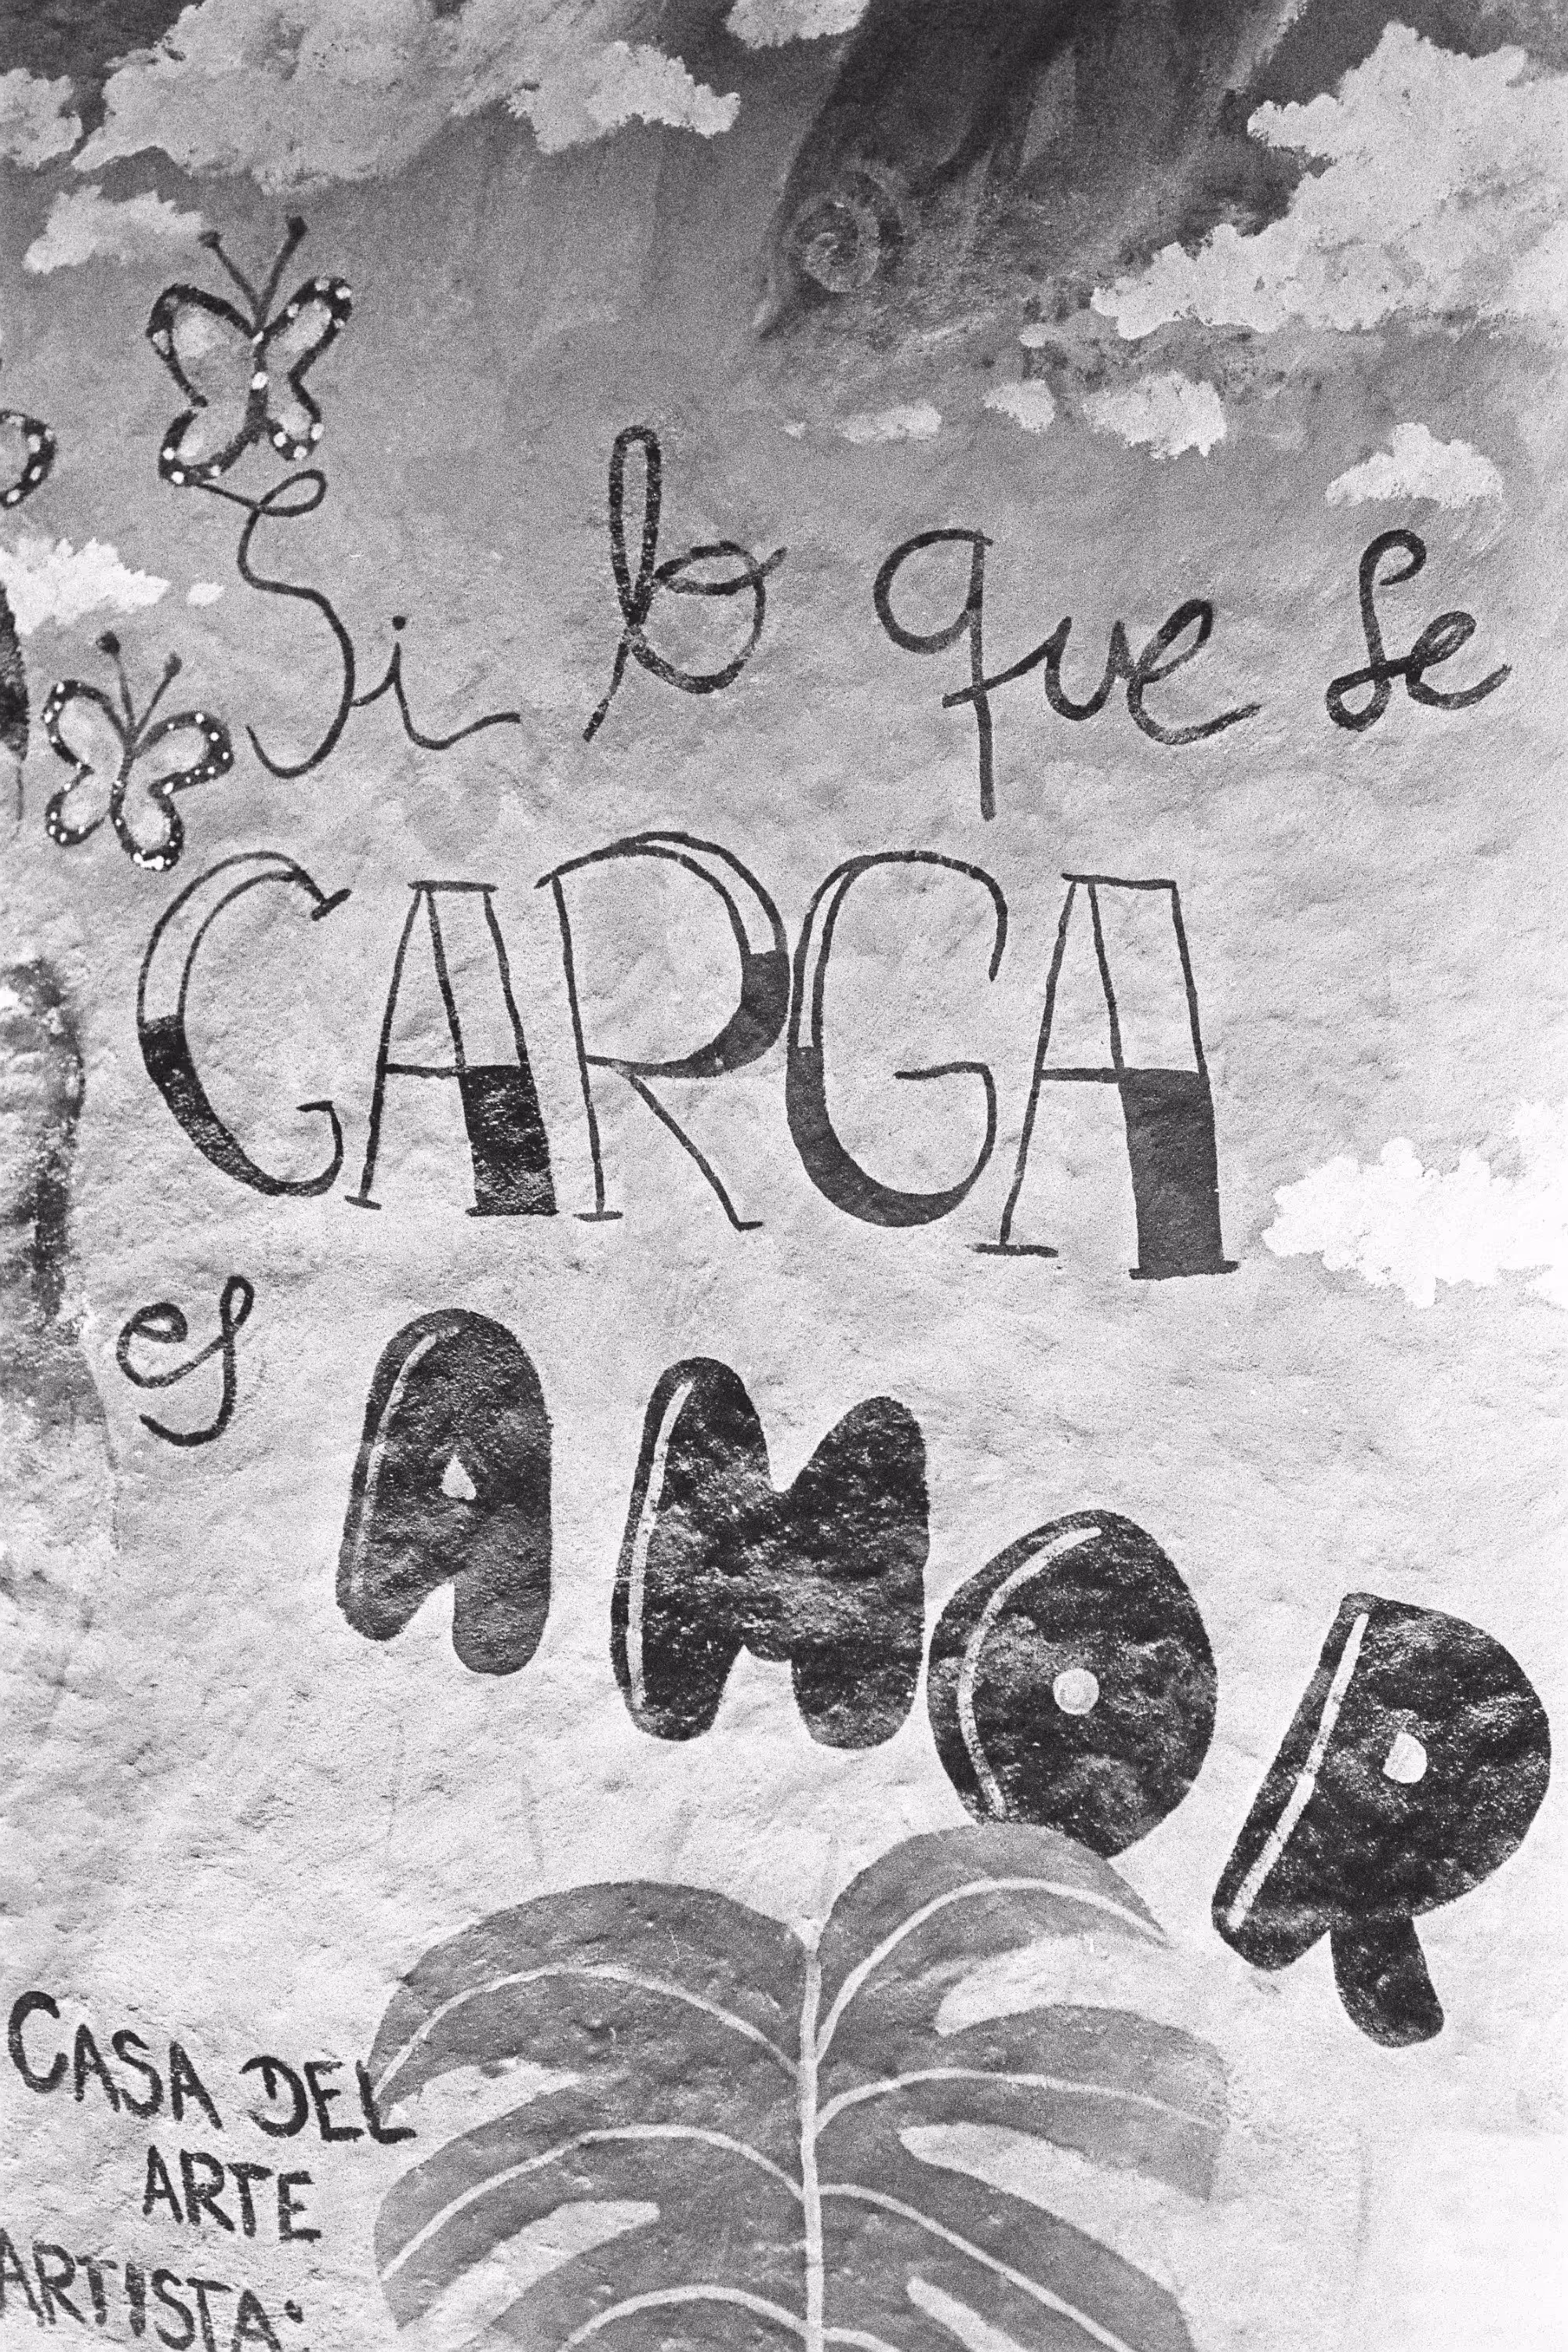 Si lo que se
CARGA
es AMOR
CASA DEL
ARTE
ARTISTA: